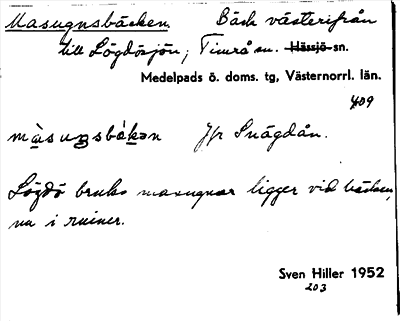 Masugnsbäcken. Bäck västerifrån
till Lögdösjön; Timrå sn. Hässjö sn.
Medelpads ö. doms. tg, Västernorrl. län.
409
màsuŋsbäkən Jfr Snägdån.
Lögdö bruks masugnar ligger vid bäcken,
nu i ruiner.
Sven Hiller 1952
203